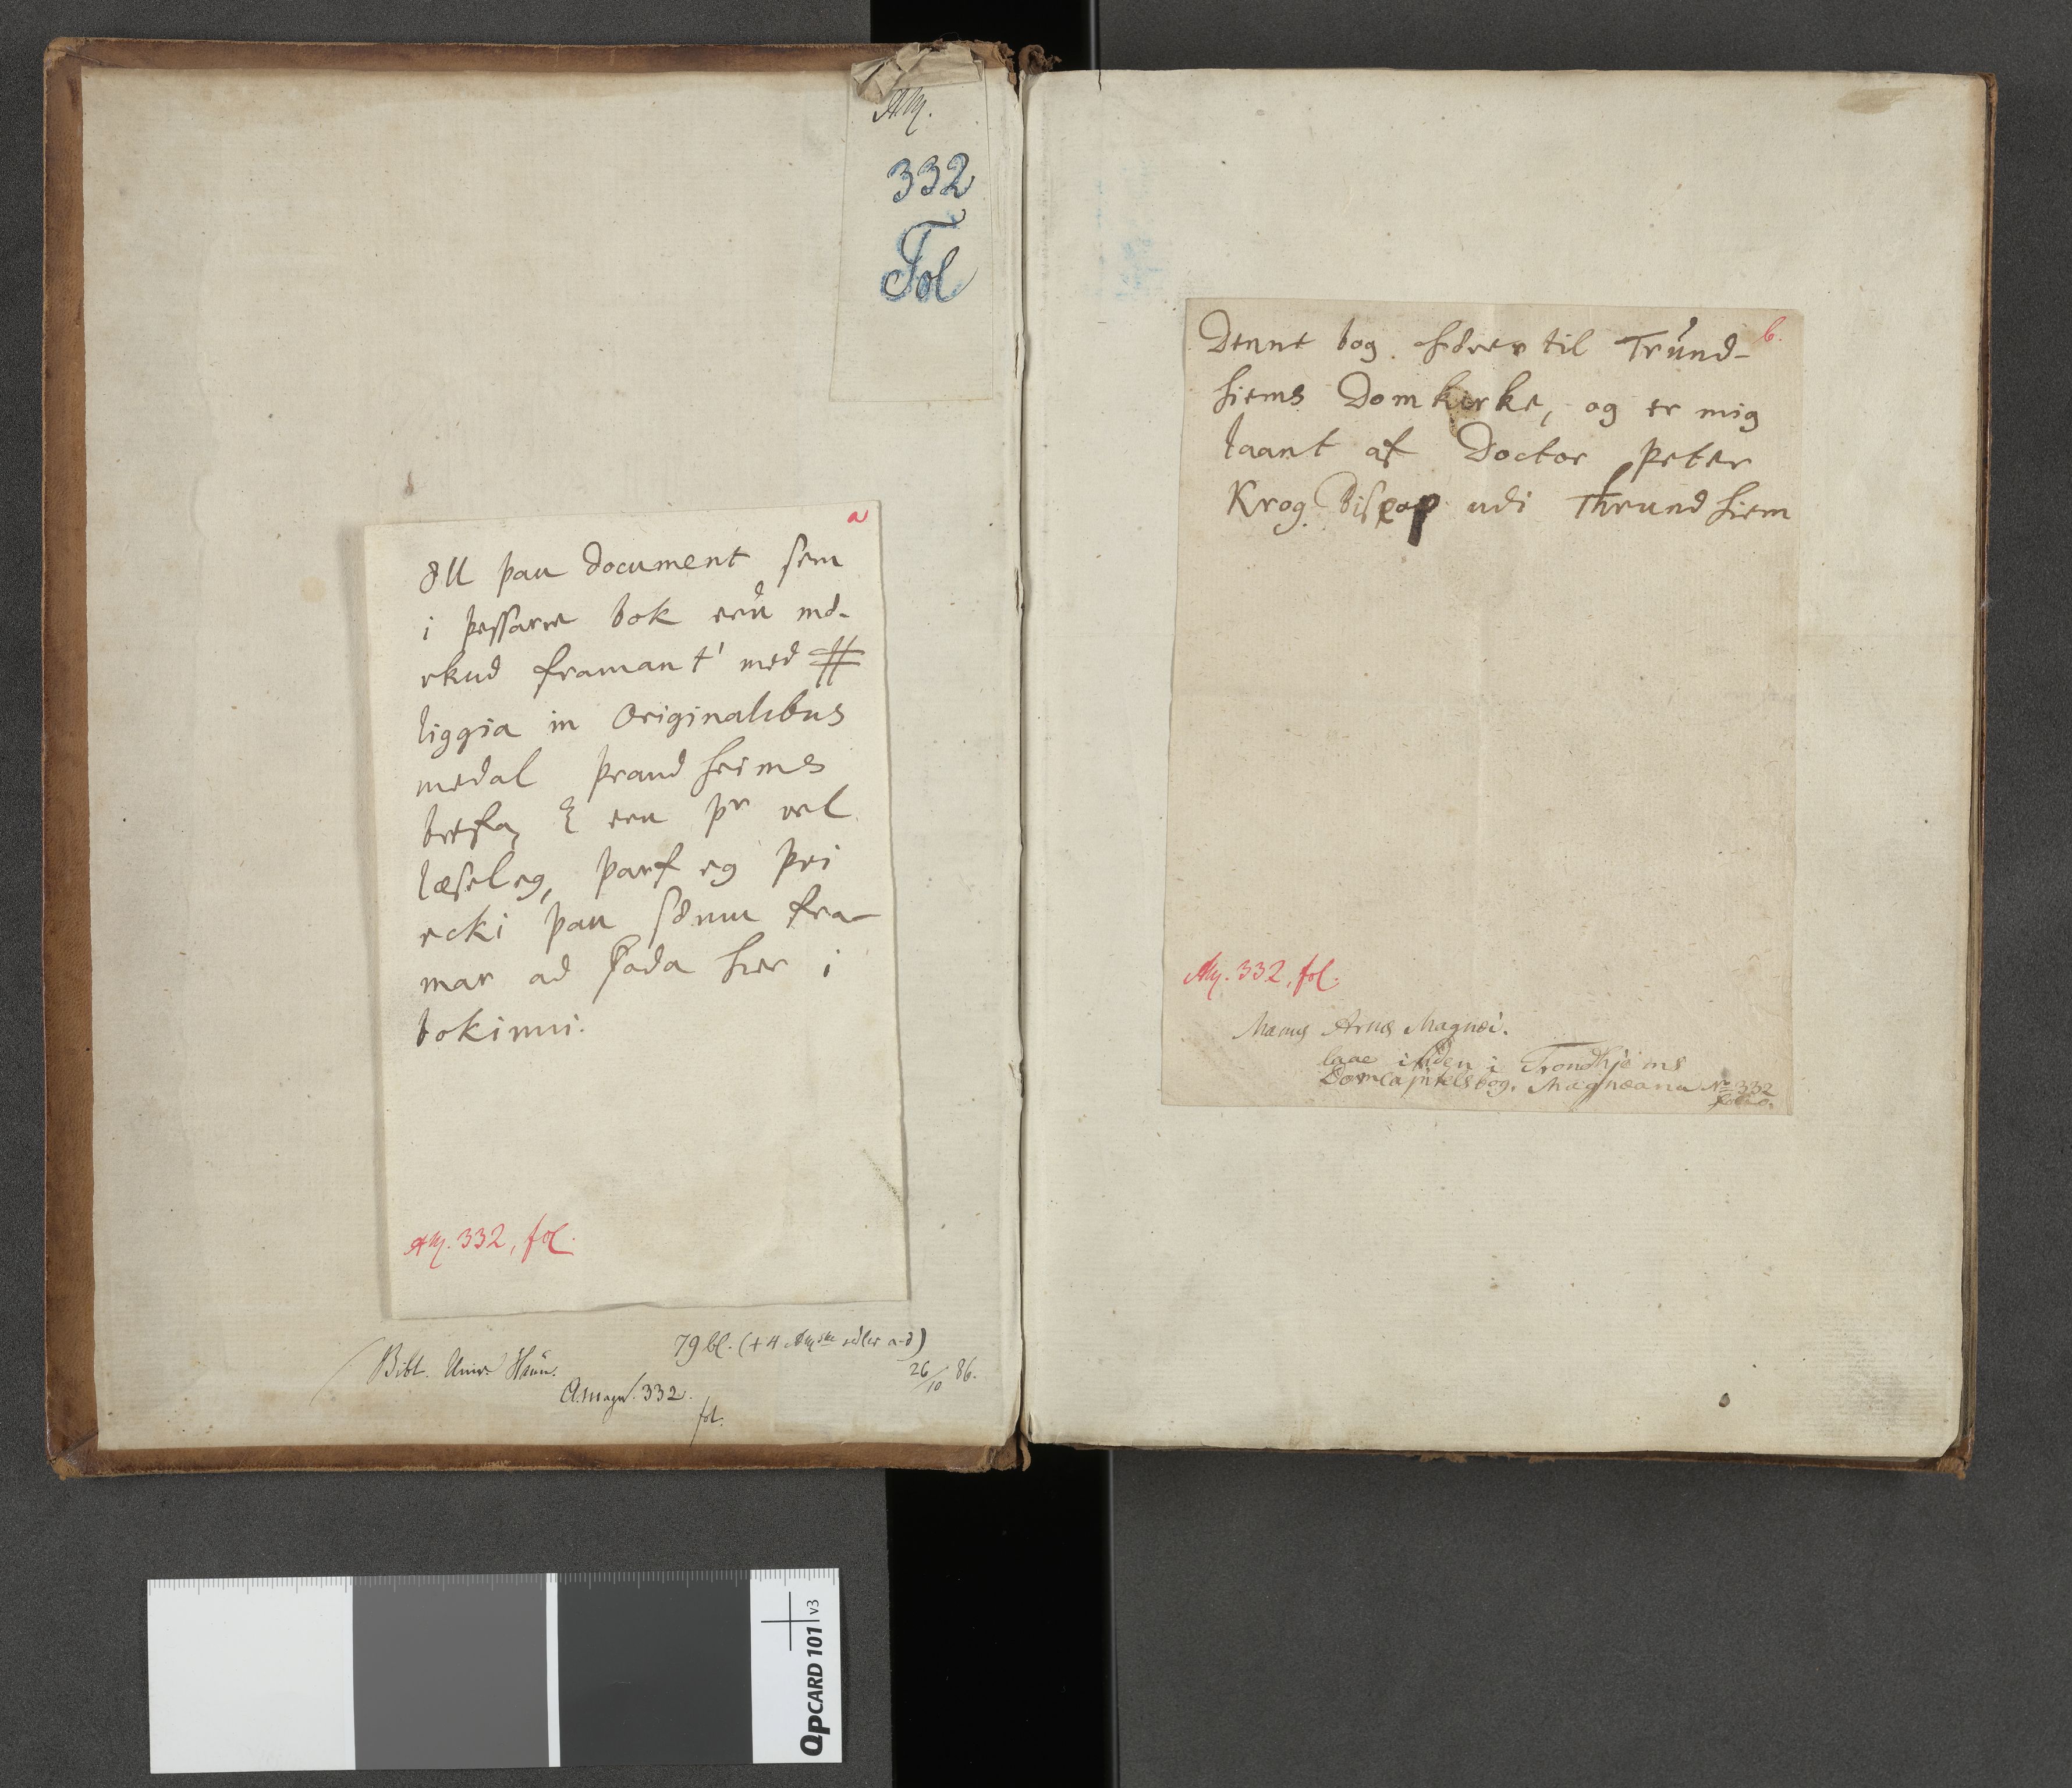 AM.
332
Fol
a
Øll þau document sem
i þessarre bok erů mø-
rkud framant' med #
liggia in Originalibus
medal þrandheims
brefa, & eru þr vel
læseleg, þarf eg þvi
ecki þau sømu fra-
mar ad skada her i
bokinni.
AM. 332, fol.
79 bl. (+ 4 AMske sedler a-d)
26/10 86.
Bibl. Univ. Haun.
A. Magn. 332.
fol.
b.
Denne bog hører til Trůnd-
hiems Domkirke, og er mig
laant af Doctor Peter
Krog Biscop udi Thrundhiem
AM. 332, fol.
Manus Arnæ Magnæi.
laae inden i Trondhjems
Domcapitelsbog. Magnæana No 332
folio.
QpCARD 101 v3